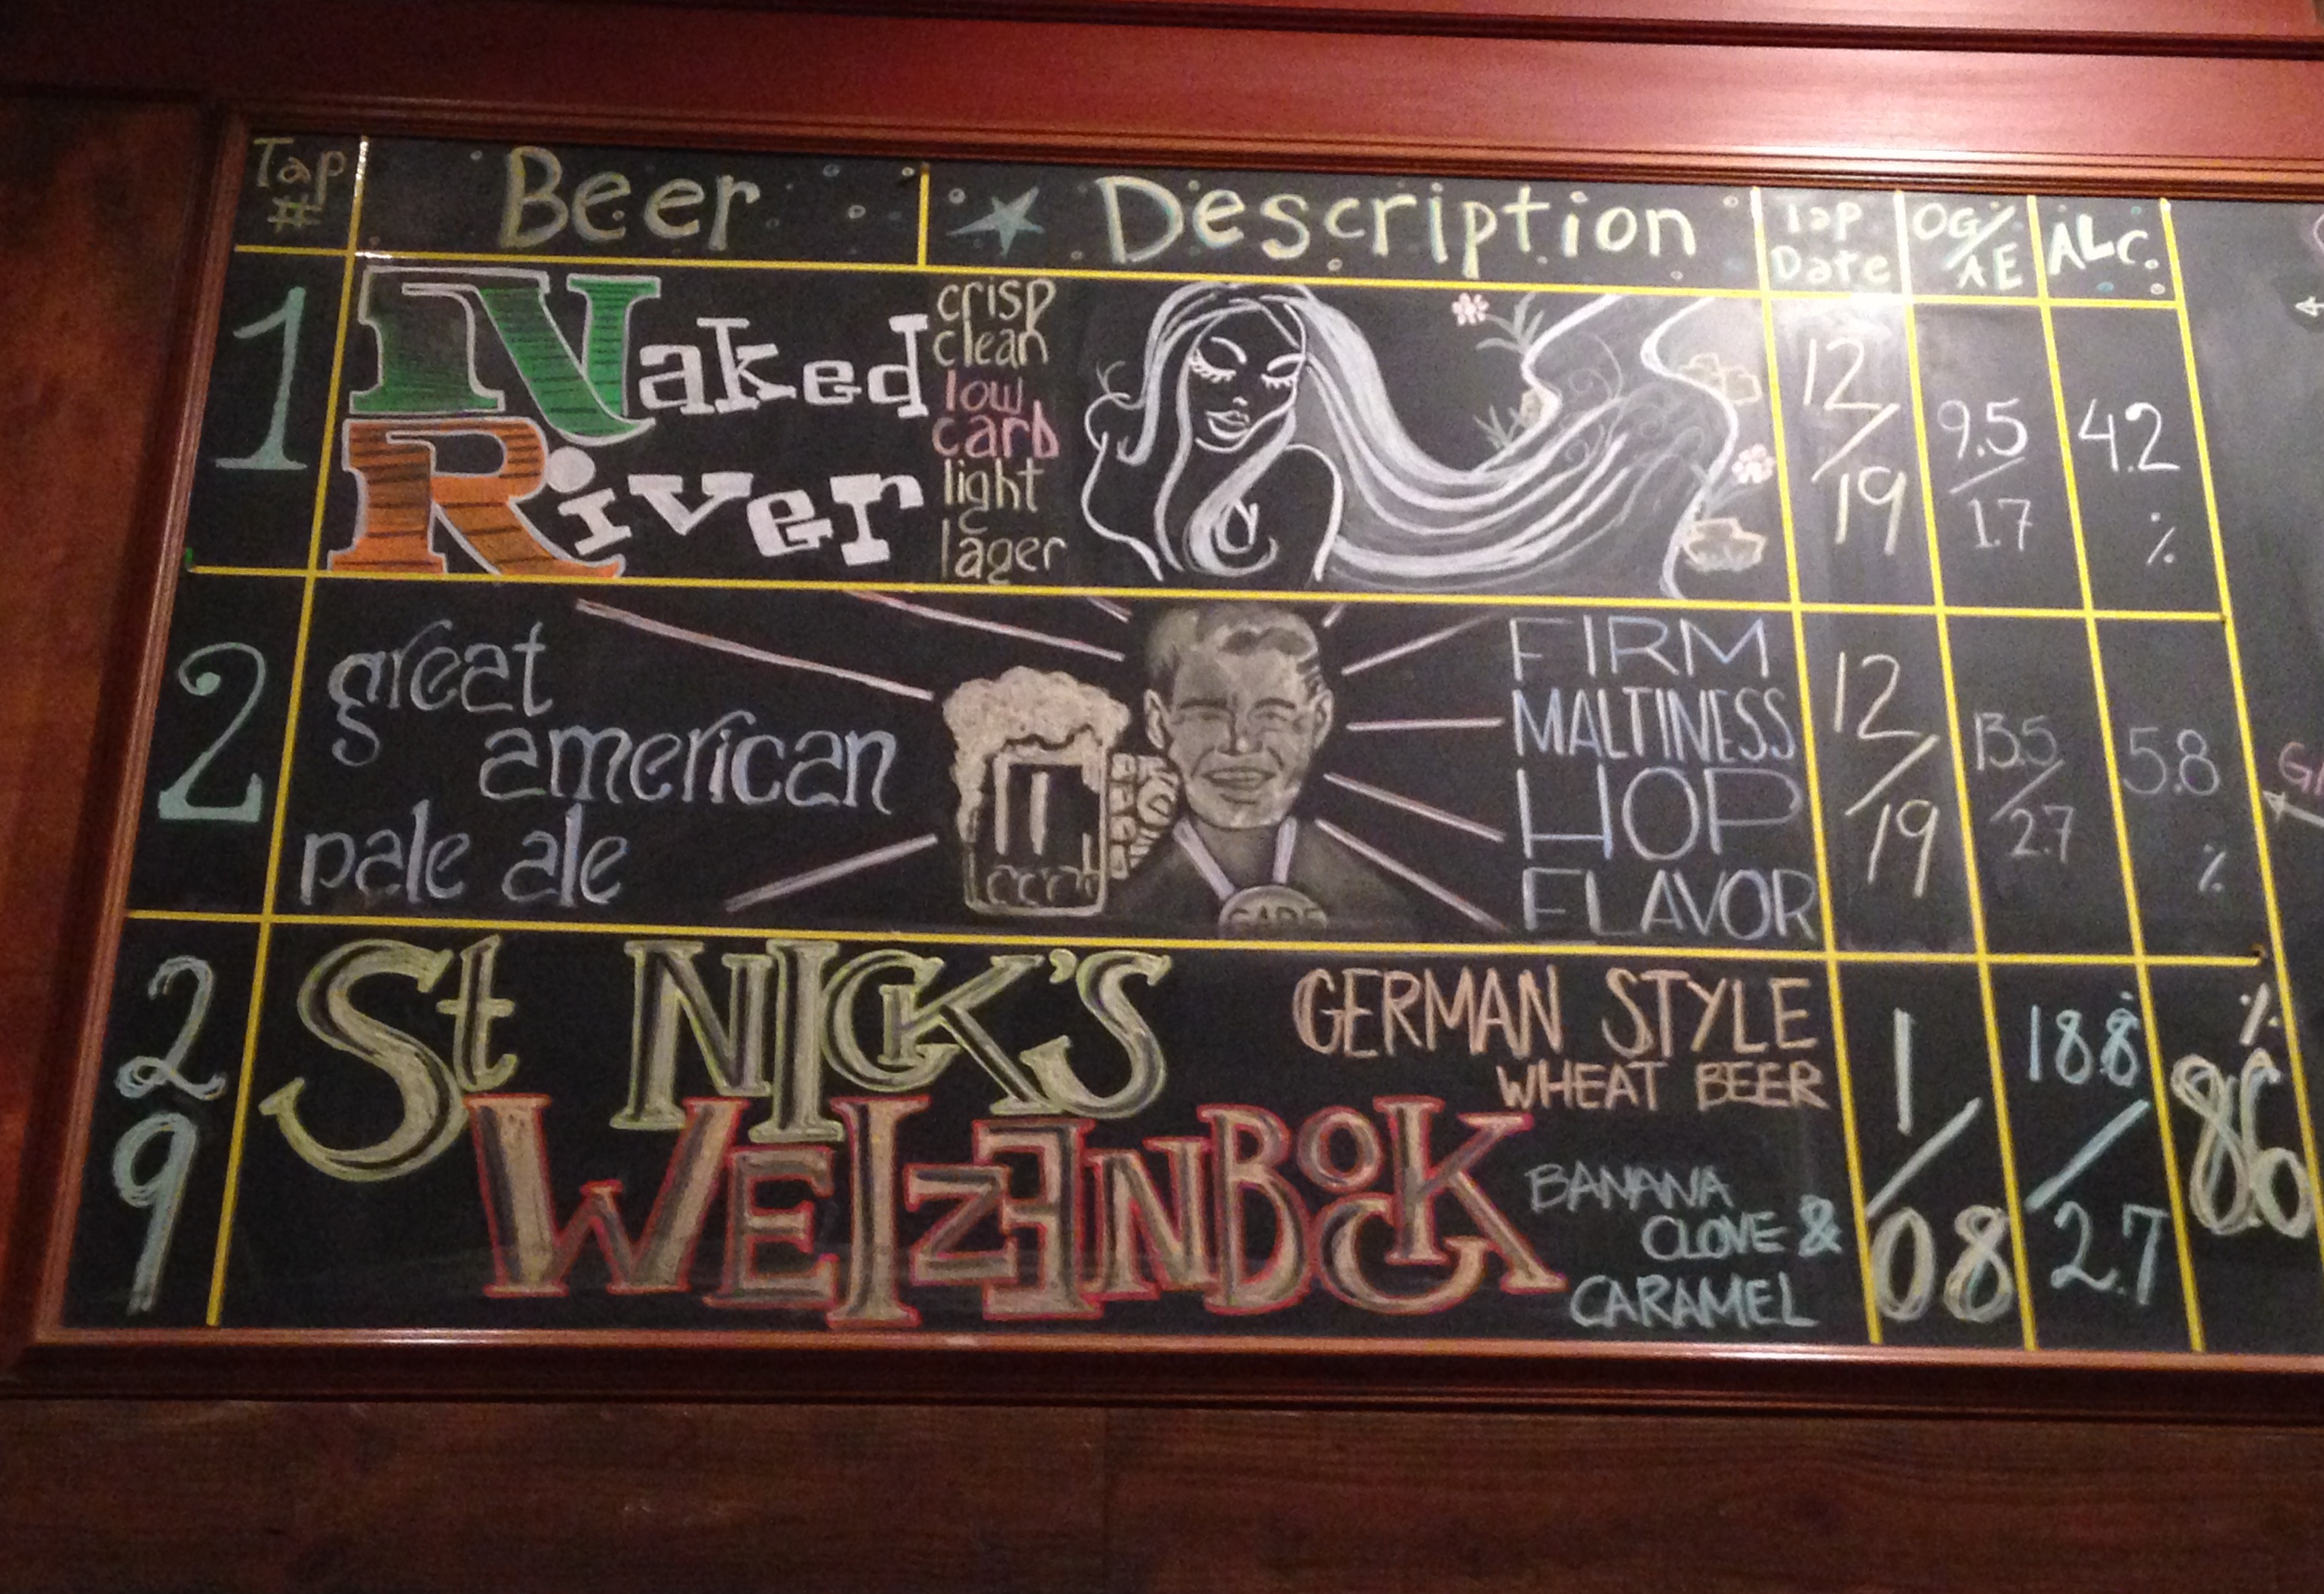 Tap # Beer Description Tap Date OG/AE ALC.
1
Naked
River
crisp
clean
low
carb
light
lager
12/19
9.5/1.7
4.2 %
2
great
american
pale ale
GABF
FIRM
MALTINESS
HOP
FLAVOR
12/19
13.5/2.7
5.8 %
29
St NICK'S
WEIZENBOCK
GERMAN STYLE
WHEAT BEER
BANANA
CLOVE &
CARAMEL
1/08
18.8/2.7
8.6 %